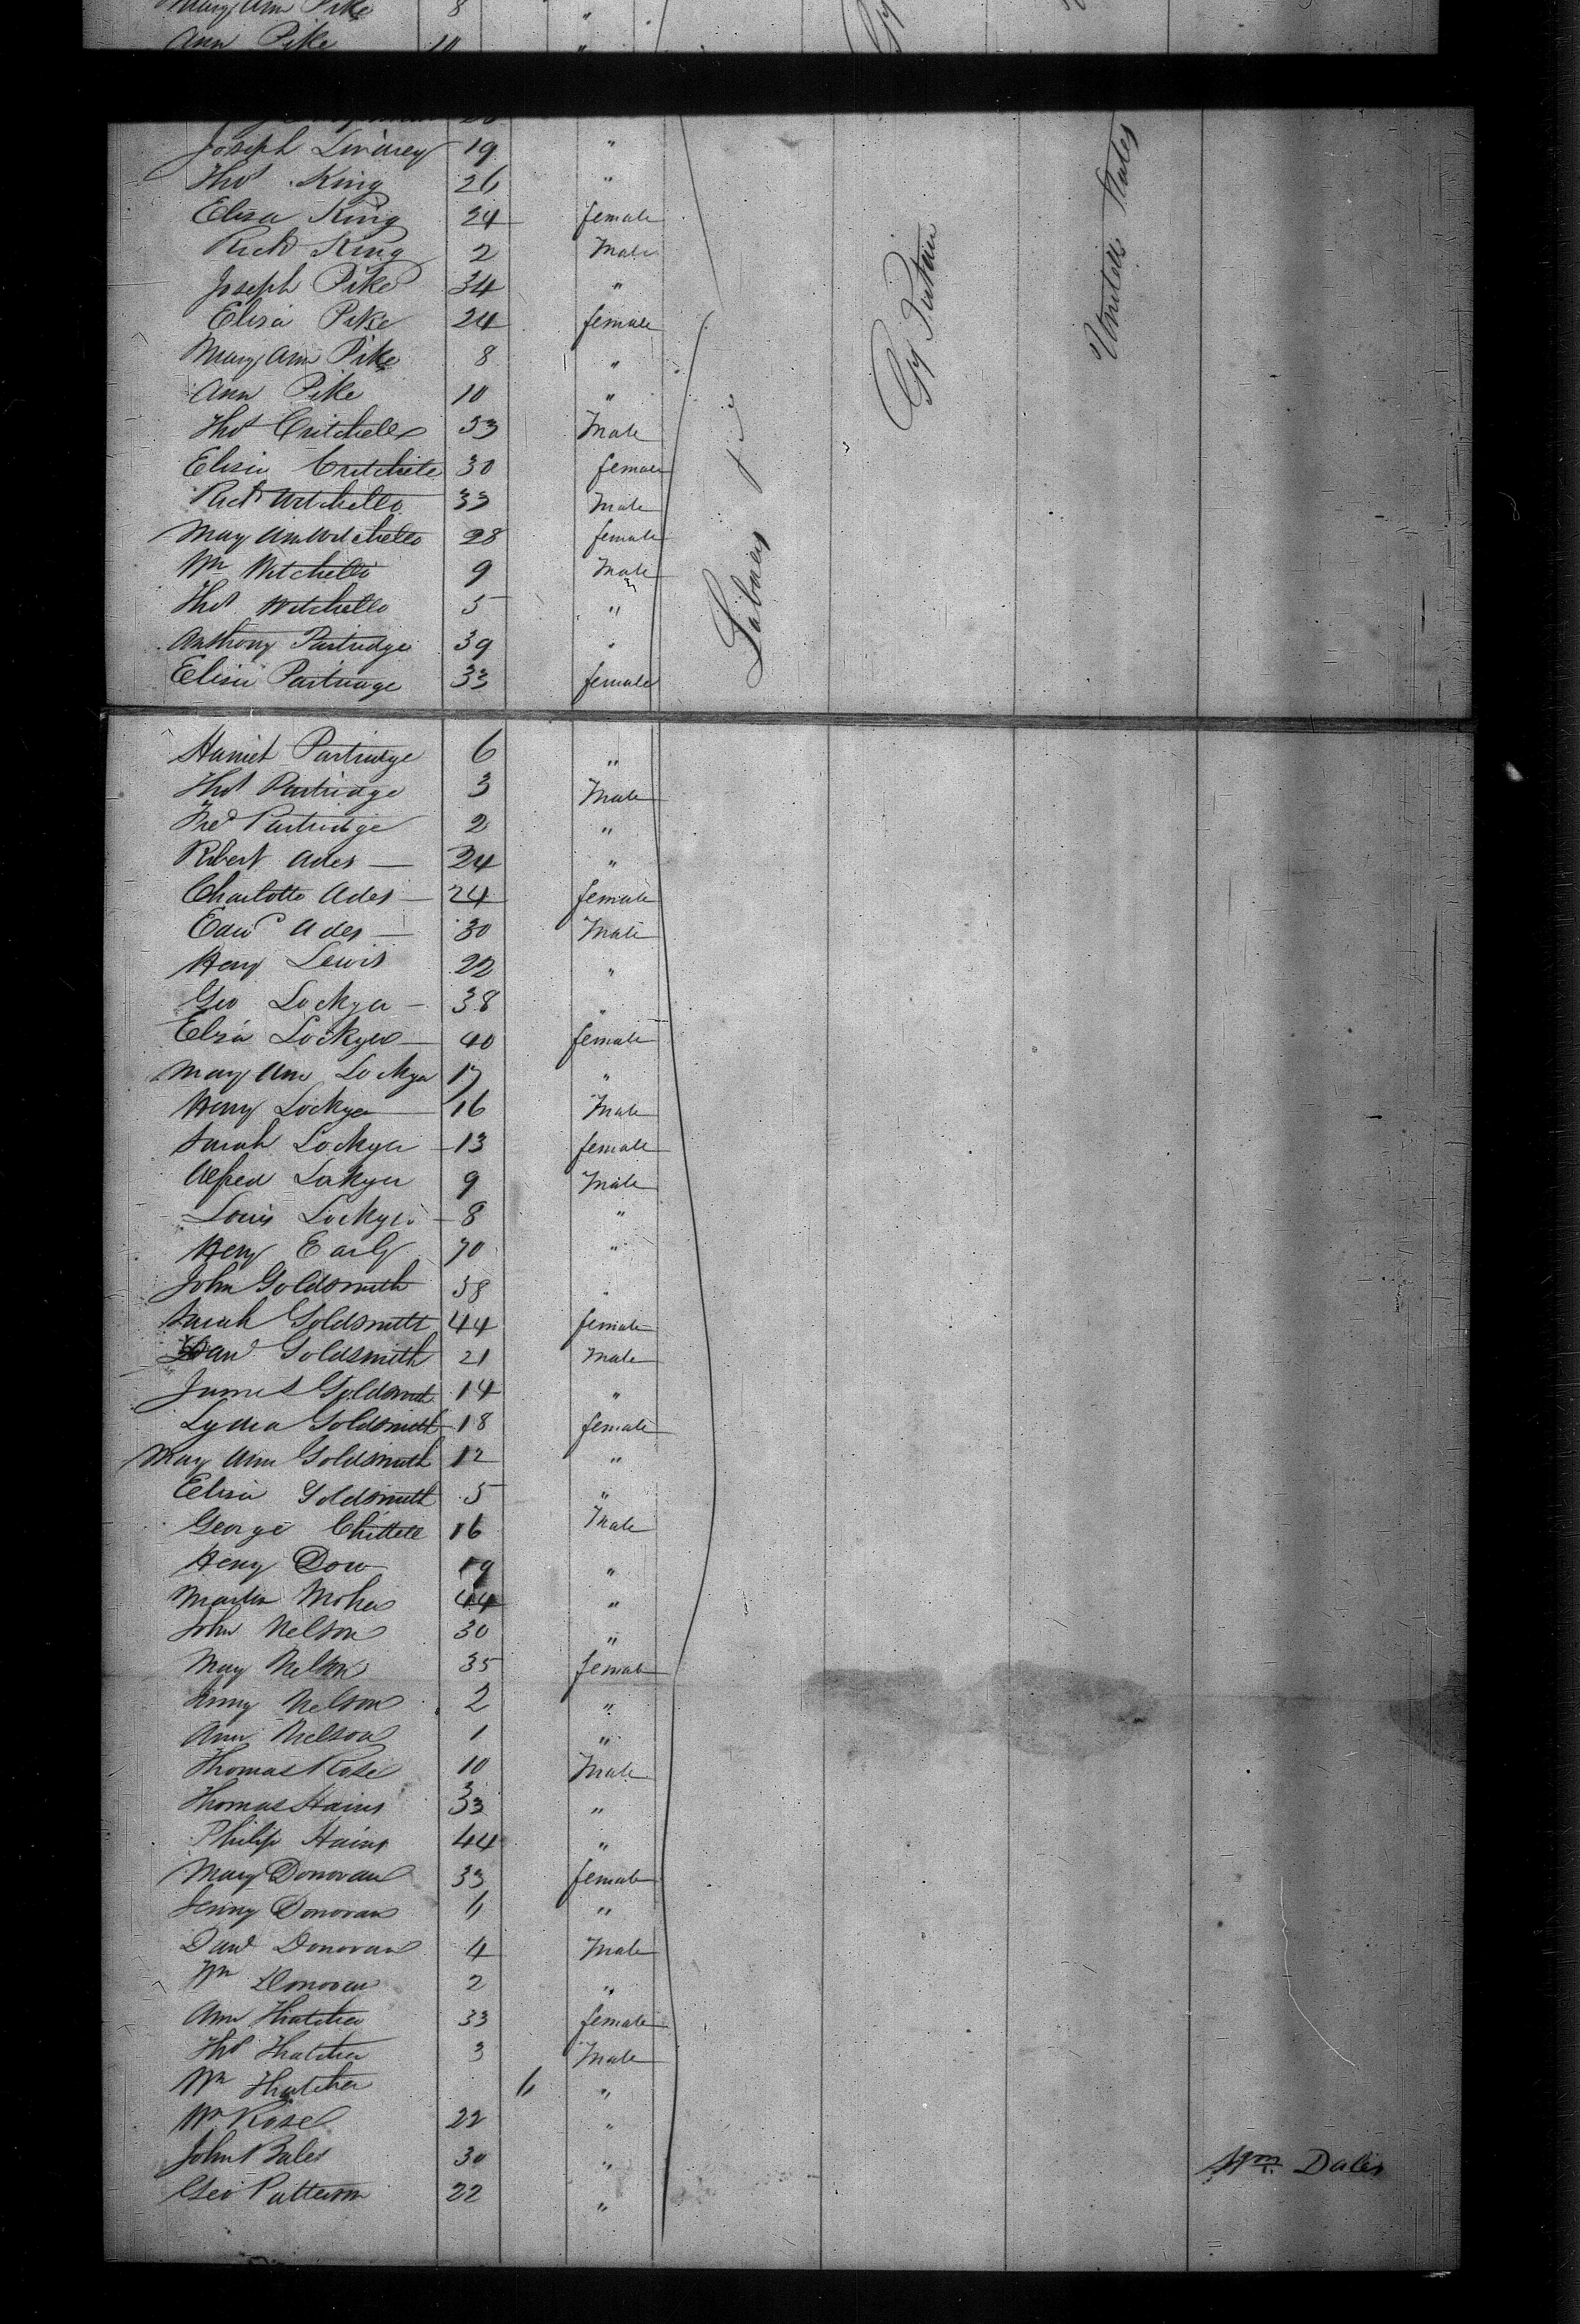 Mary Ann Pike 8 "
Ann Pike 10 "
Joseph Lindsey 19 "
Thos King 26 "
Eliza King 24 female
Richd King 2 Male
Joseph Pike 34 "
Eliza Pike 24 female
Mary Ann Pike 8 "
Ann Pike 10 "
Thos Critchell 33 Male
Eliza Critchell 30 female
Richd Witchello 33 Male
Mary Ann Witchello 28 female
Wm Witchello 9 Male
Thos Witchello 5 "
Anthony Partridge 39 "
Eliza Partridge 33 female
Labourers
Gt Britain
United States
Harriet Partridge 6 "
Thos Partridge 3 Male
Fred Partridge 2 "
Robert Ades 24 "
Charlotte Ades 24 female
Edwd Ades 30 Male
Heny Lewis 22 "
Geo Lockyer 38 "
Eliza Lockyer 40 female
Mary Ann Lockyer 17 "
Henry Lockyer 16 Male
Sarah Lockyer 13 female
Alfred Lockyer 9 Male
Louis Lockyer 8 "
Heny Early 70 "
John Goldsmith 38 "
Sarah Goldsmith 44 female
Goldsmith 21 Male
James Goldsmith 14 "
Lydia Goldsmith 18 female
Mary Ann Goldsmith 12 "
Eliza Goldsmith 5 "
George Chittell 16 Male
Heny Dow 19 "
Martin 44 "
John Nelson 30 "
Mary Nelson 35 female
Nelson 2 "
Ann Nelson 1 "
Thomas Rose 10 Male
Thomas Hains 33 "
Philip Hains 44 "
Mary Donovan 33 female
Jenny Donovan 6 "
Danl Donovan 4 Male
Wm Donovan 2 "
Ann Thatcher 33 female
Thos Thatcher 3 Male
Wm Thatcher 6 "
Wm Rose 22 "
John Bales 30 "
Wm. Dales
Geo Patterson 22 "